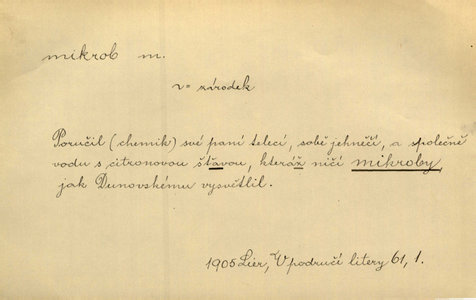 mikrob m.
v= zárodek
Poručil (chemik) své paní telecí, sobě jehněčí, a společně
vodu s citronovou šťavou, kteráž ničí mikroby,
jak Dunovskému vysvětlil.
1905 Lier, V područí litery 61, 1.